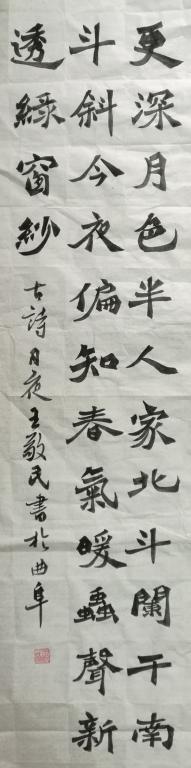 更深月色半人家北斗闌干南
斗斜今夜偏知春氣暖蟲聲新
透綠窗紗
古詩月夜王敬民書於曲阜